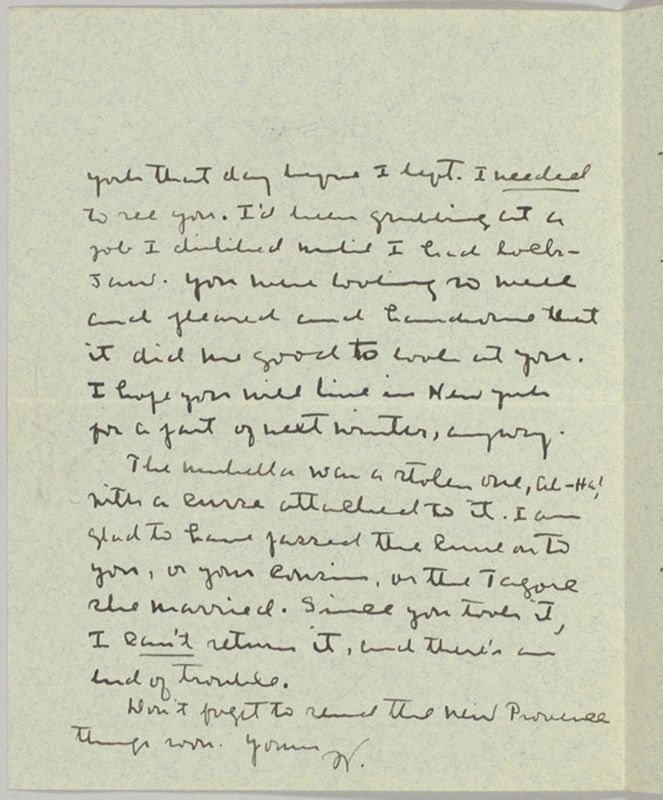 york that day before I left. I needed
to see you. I'd been grubbing at a
job I disliked until I had lock-
jaw. You were looking so well
and pleased and handsome that
it did me good to look at you.
I hope you will live in New York
for a part of next winter, anyway.
The umbrella was a stolen one, al-Ha!
with a curse attached to it. I am
glad to have passed the curse on to
you, or your cousin, or the Tagore
she married. Since you took it,
I can't return it, and there's an
end of trouble.
Don't forget to send the new Provence
things soon. Yours W.